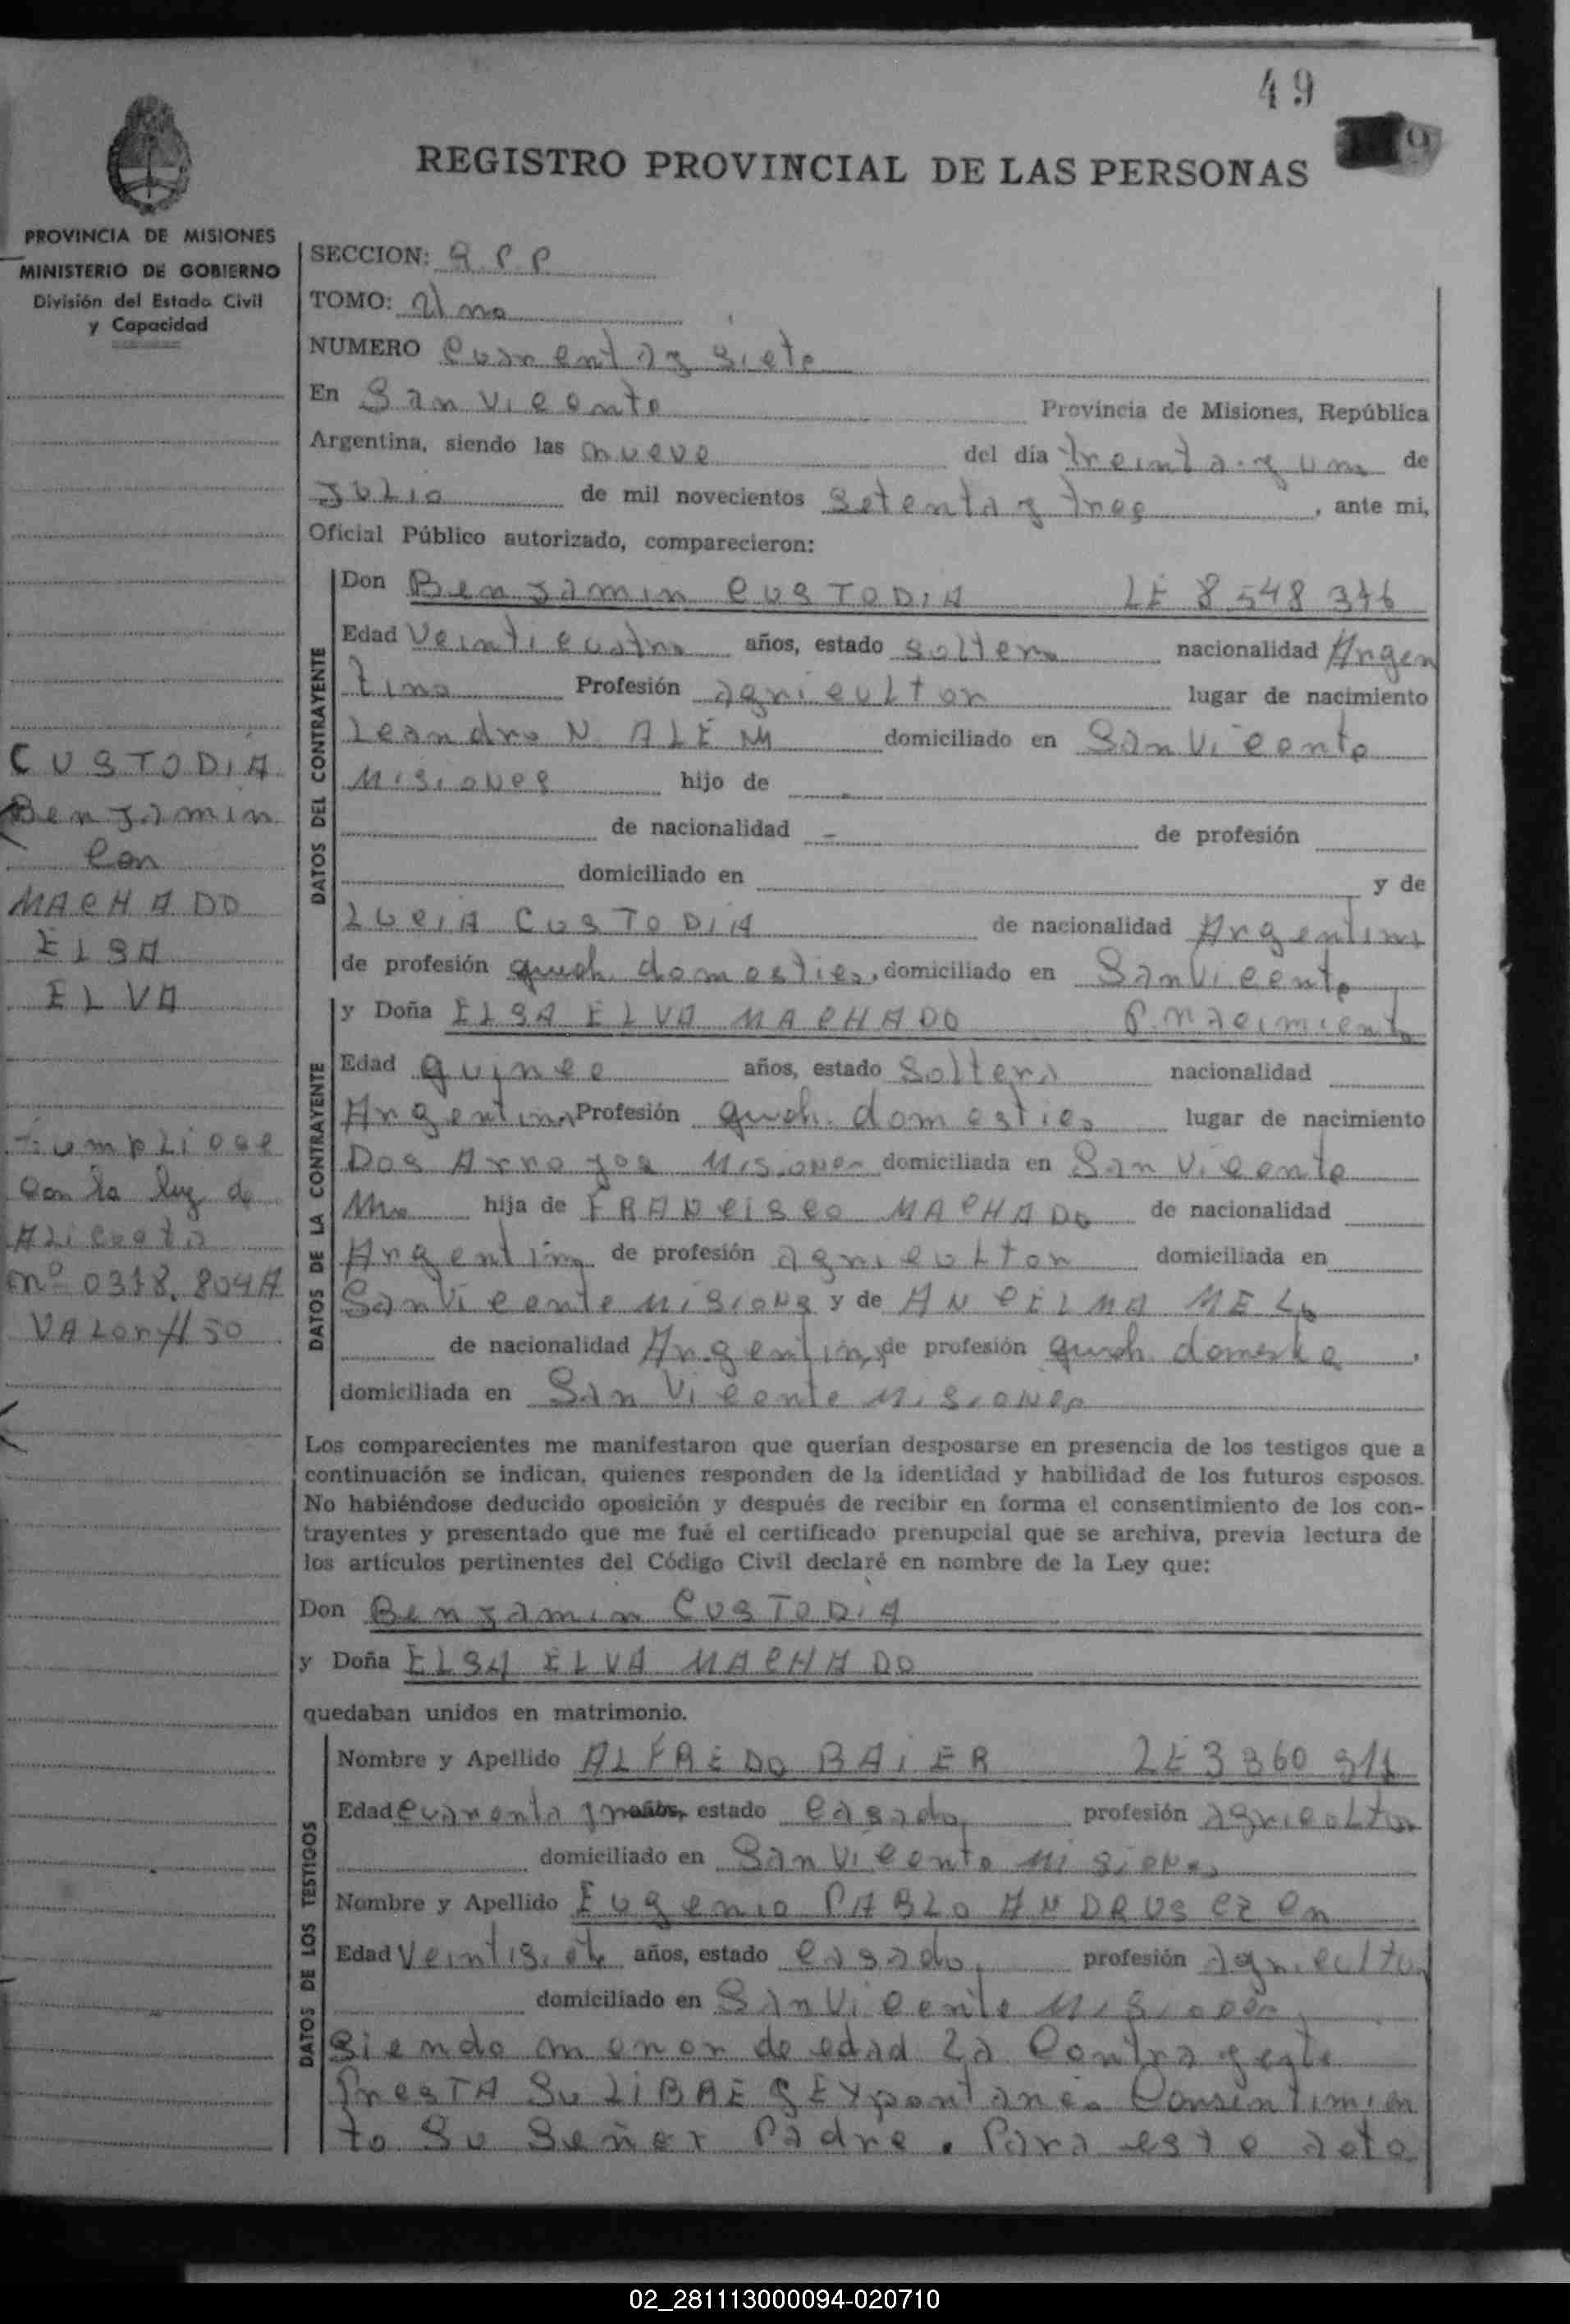 49
REGISTRO PROVINCIAL DE LAS PERSONAS
PROVINCIA DE MISIONES
MINISTERIO DE GOBIERNO
División del Estado Civil
y Capacidad
SECCION: R P P
TOMO: Uno
NUMERO Cuarenta y siete
En San Vicente Provincia de Misiones, República
Argentina, siendo las nueve del día treinta y un de
Julio de mil novecientos Setenta y tres, ante mi,
Oficial Público autorizado, comparecieron:
DATOS DEL CONTRAYENTE
Don Benjamin CUSTODIA LE 8 548 376
Edad Veinticuatro años, estado Soltero nacionalidad Argen
tino Profesión agricultor lugar de nacimiento
Leandro N. ALEM domiciliado en San Vicente
Misiones hijo de
de nacionalidad - de profesión
domiciliado en y de
LUCIA CUSTODIA de nacionalidad Argentina
de profesión queh. domestico, domiciliado en San Vicente
DATOS DE LA CONTRAYENTE
y Doña ELSA ELVA MACHADO P. nacimiento
Edad quince años, estado Soltera nacionalidad
Argentina Profesión queh. domestico lugar de nacimiento
Dos Arroyos Misiones domiciliada en San Vicente
Mnes hija de FRANCISCO MACHADO de nacionalidad
Argentina de profesión agricultor domiciliada en
San Vicente Misiones y de ANCELMA MELO
de nacionalidad Argentina, de profesión queh domestico,
domiciliada en San Vicente Misiones
CUSTODIA
Benjamin
Con
MACHADO
ELSA
ELVA
Cumpliose
Con la ley de
Alicuota
nº 0318.804A
VALOR $ 50
Los comparecientes me manifestaron que querían desposarse en presencia de los testigos que a
continuación se indican, quienes responden de la identidad y habilidad de los futuros esposos.
No habiéndose deducido oposición y después de recibir en forma el consentimiento de los con-
trayentes y presentado que me fué el certificado prenupcial que se archiva, previa lectura de
los artículos pertinentes del Código Civil declaré en nombre de la Ley que:
Don Benjamin CUSTODIA
y Doña ELSA ELVA MACHADO
quedaban unidos en matrimonio.
DATOS DE LOS TESTIGOS
Nombre y Apellido ALFREDO BAIER LE 3 360
Edad cuarenta años, estado Casado profesión agricultor
domiciliado en San Vicente Misiones
Nombre y Apellido Eugenio PABLO ANDRUSCZEN
Edad Veintisiete años, estado Casado, profesión agricultor
domiciliado en San Vicente Misiones,
Siendo menor de edad La Contrayente
Presta Su LIBRE y EXpontaneo Consentimien
to Su Señor Padre. Para este acto
02_281113000094-020710